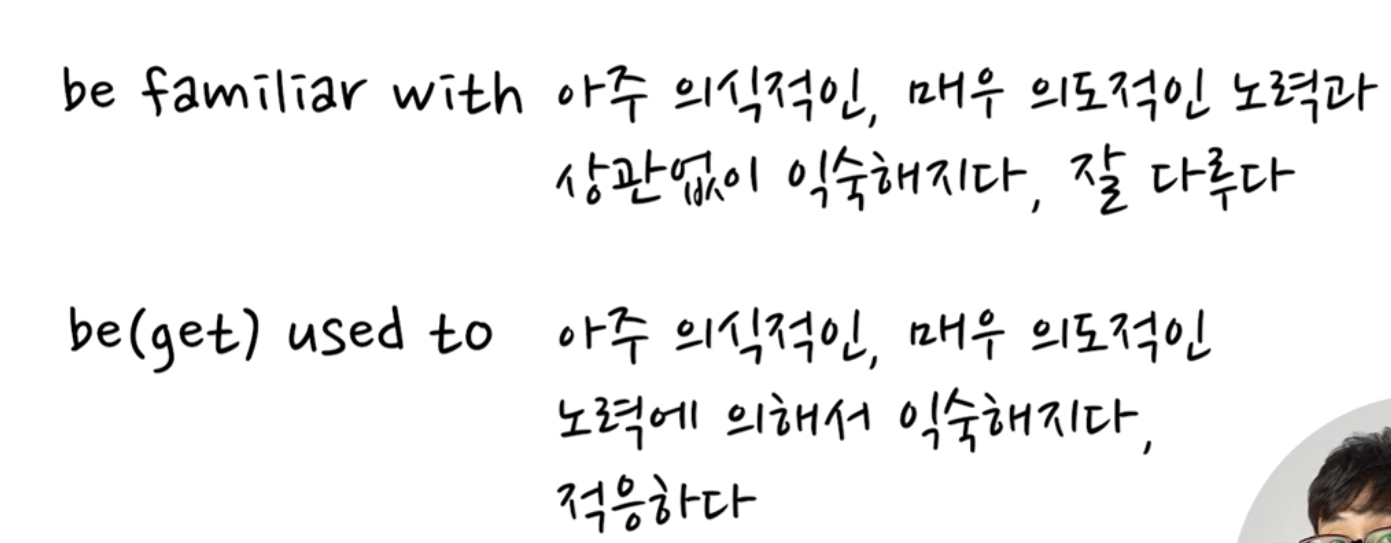 be familiar with 아주 의식적인, 매우 의도적인 노력과
상관없이 익숙해지다, 잘 다루다
be(get) used to 아주 의식적인, 매우 의도적인
노력에 의해서 익숙해지다,
적응하다